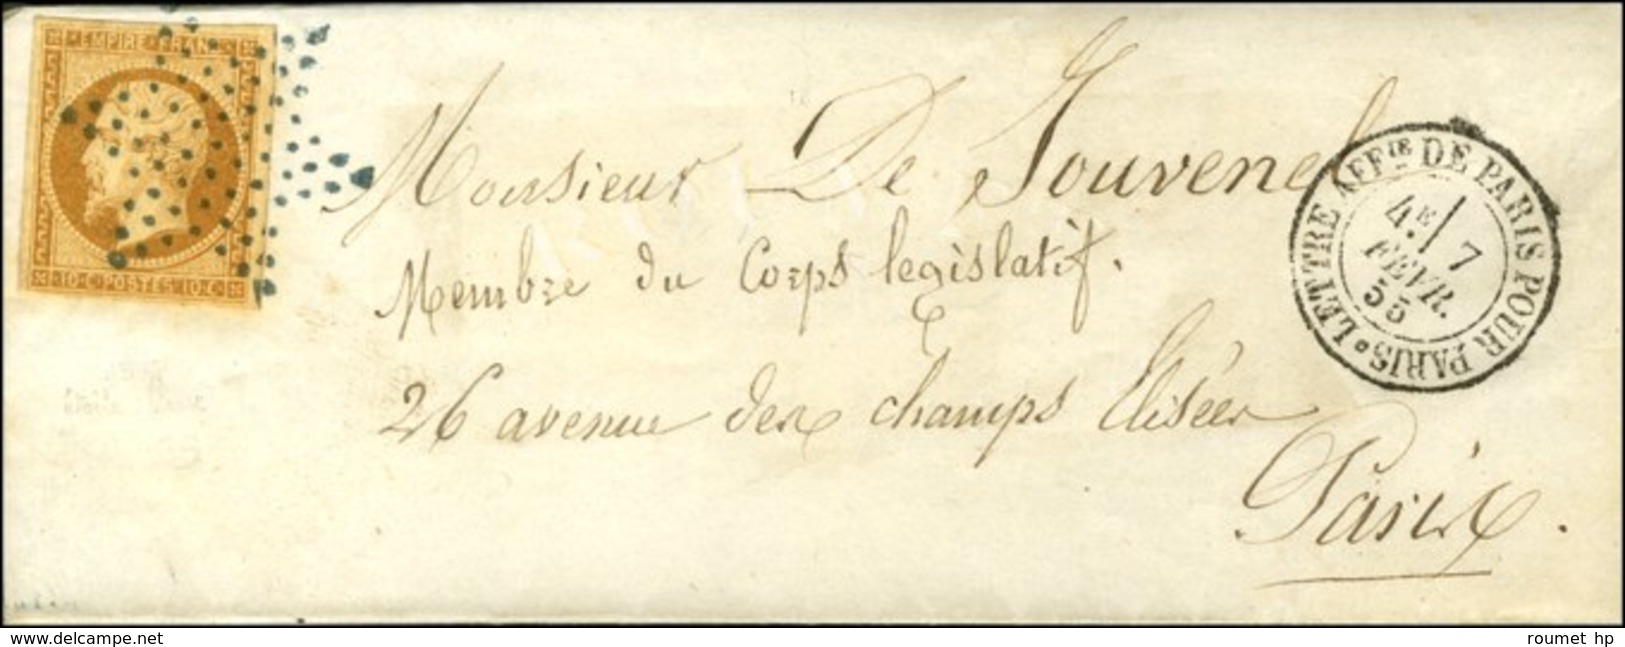 EMPIRE FRANC
10·C· POSTES 10·C·
Monsieur De Jouvenel
Membre du Corps legislatif.
26 avenue des champs Elisées
Paris.
LETTRE AFFIE DE PARIS POUR PARIS
4E/ 7
FEVR.
55
www.delcampe.net
roumet hp